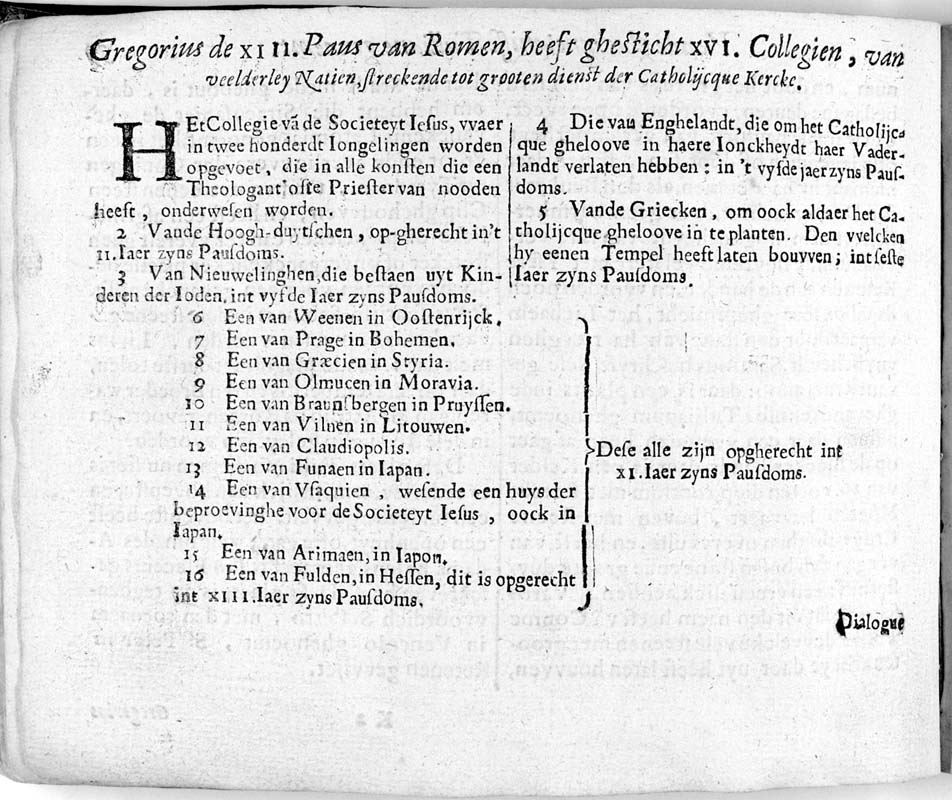 Gregorius de XIII. Paus van Romen, heeft ghesticht XVI. Collegien, van
veelderley Natien, streckende tot grooten dienst der Catholijcque Kercke.
HEt Collegie vā de Societeyt Iesus, vvaer
in twee honderdt Iongelingen worden
opgevoet, die in alle konsten die een
Theologant ofte Priester van nooden
heeft, onderwesen worden.
2 Vande Hoogh-duytschen, op-gherecht in't
11. Iaer zyns Pausdoms.
3 Van Nieuwelinghen, die bestaen uyt Kin-
deren der Ioden, int vyfde Iaer zyns Pausdoms.
4 Die van Enghelandt, die om het Catholijc-
que gheloove in haere Ionckheydt haer Vader-
landt verlaten hebben: in 't vyfde jaer zyns Paus-
doms.
5 Vande Griecken, om oock aldaer het Ca-
tholijcque gheloove in te planten. Den vvelcken
hy eenen Tempel heeft laten bouvven; int seste
Iaer zyns Pausdoms.
6 Een van Weenen in Oostenrijck.
7 Een van Prage in Bohemen.
8 Een van Græcien in Styria.
9 Een van Olmucen in Moravia.
10 Een van Braunsbergen in Pruyssen.
11 Een van Vilnen in Litouwen.
12 Een van Claudiopolis.
13 Een van Funaen in Iapan.
14 Een van Vsaquien, wesende een huys der
beproevinghe voor de Societeyt Iesus, oock in
Iapan.
15 Een van Arimaen, in Iapon.
16 Een van Fulden, in Hessen, dit is opgerecht
int XIII. Iaer zyns Pausdoms.
Dese alle zijn opgherecht int
XI. Iaer zyns Pausdoms.
Dialogue